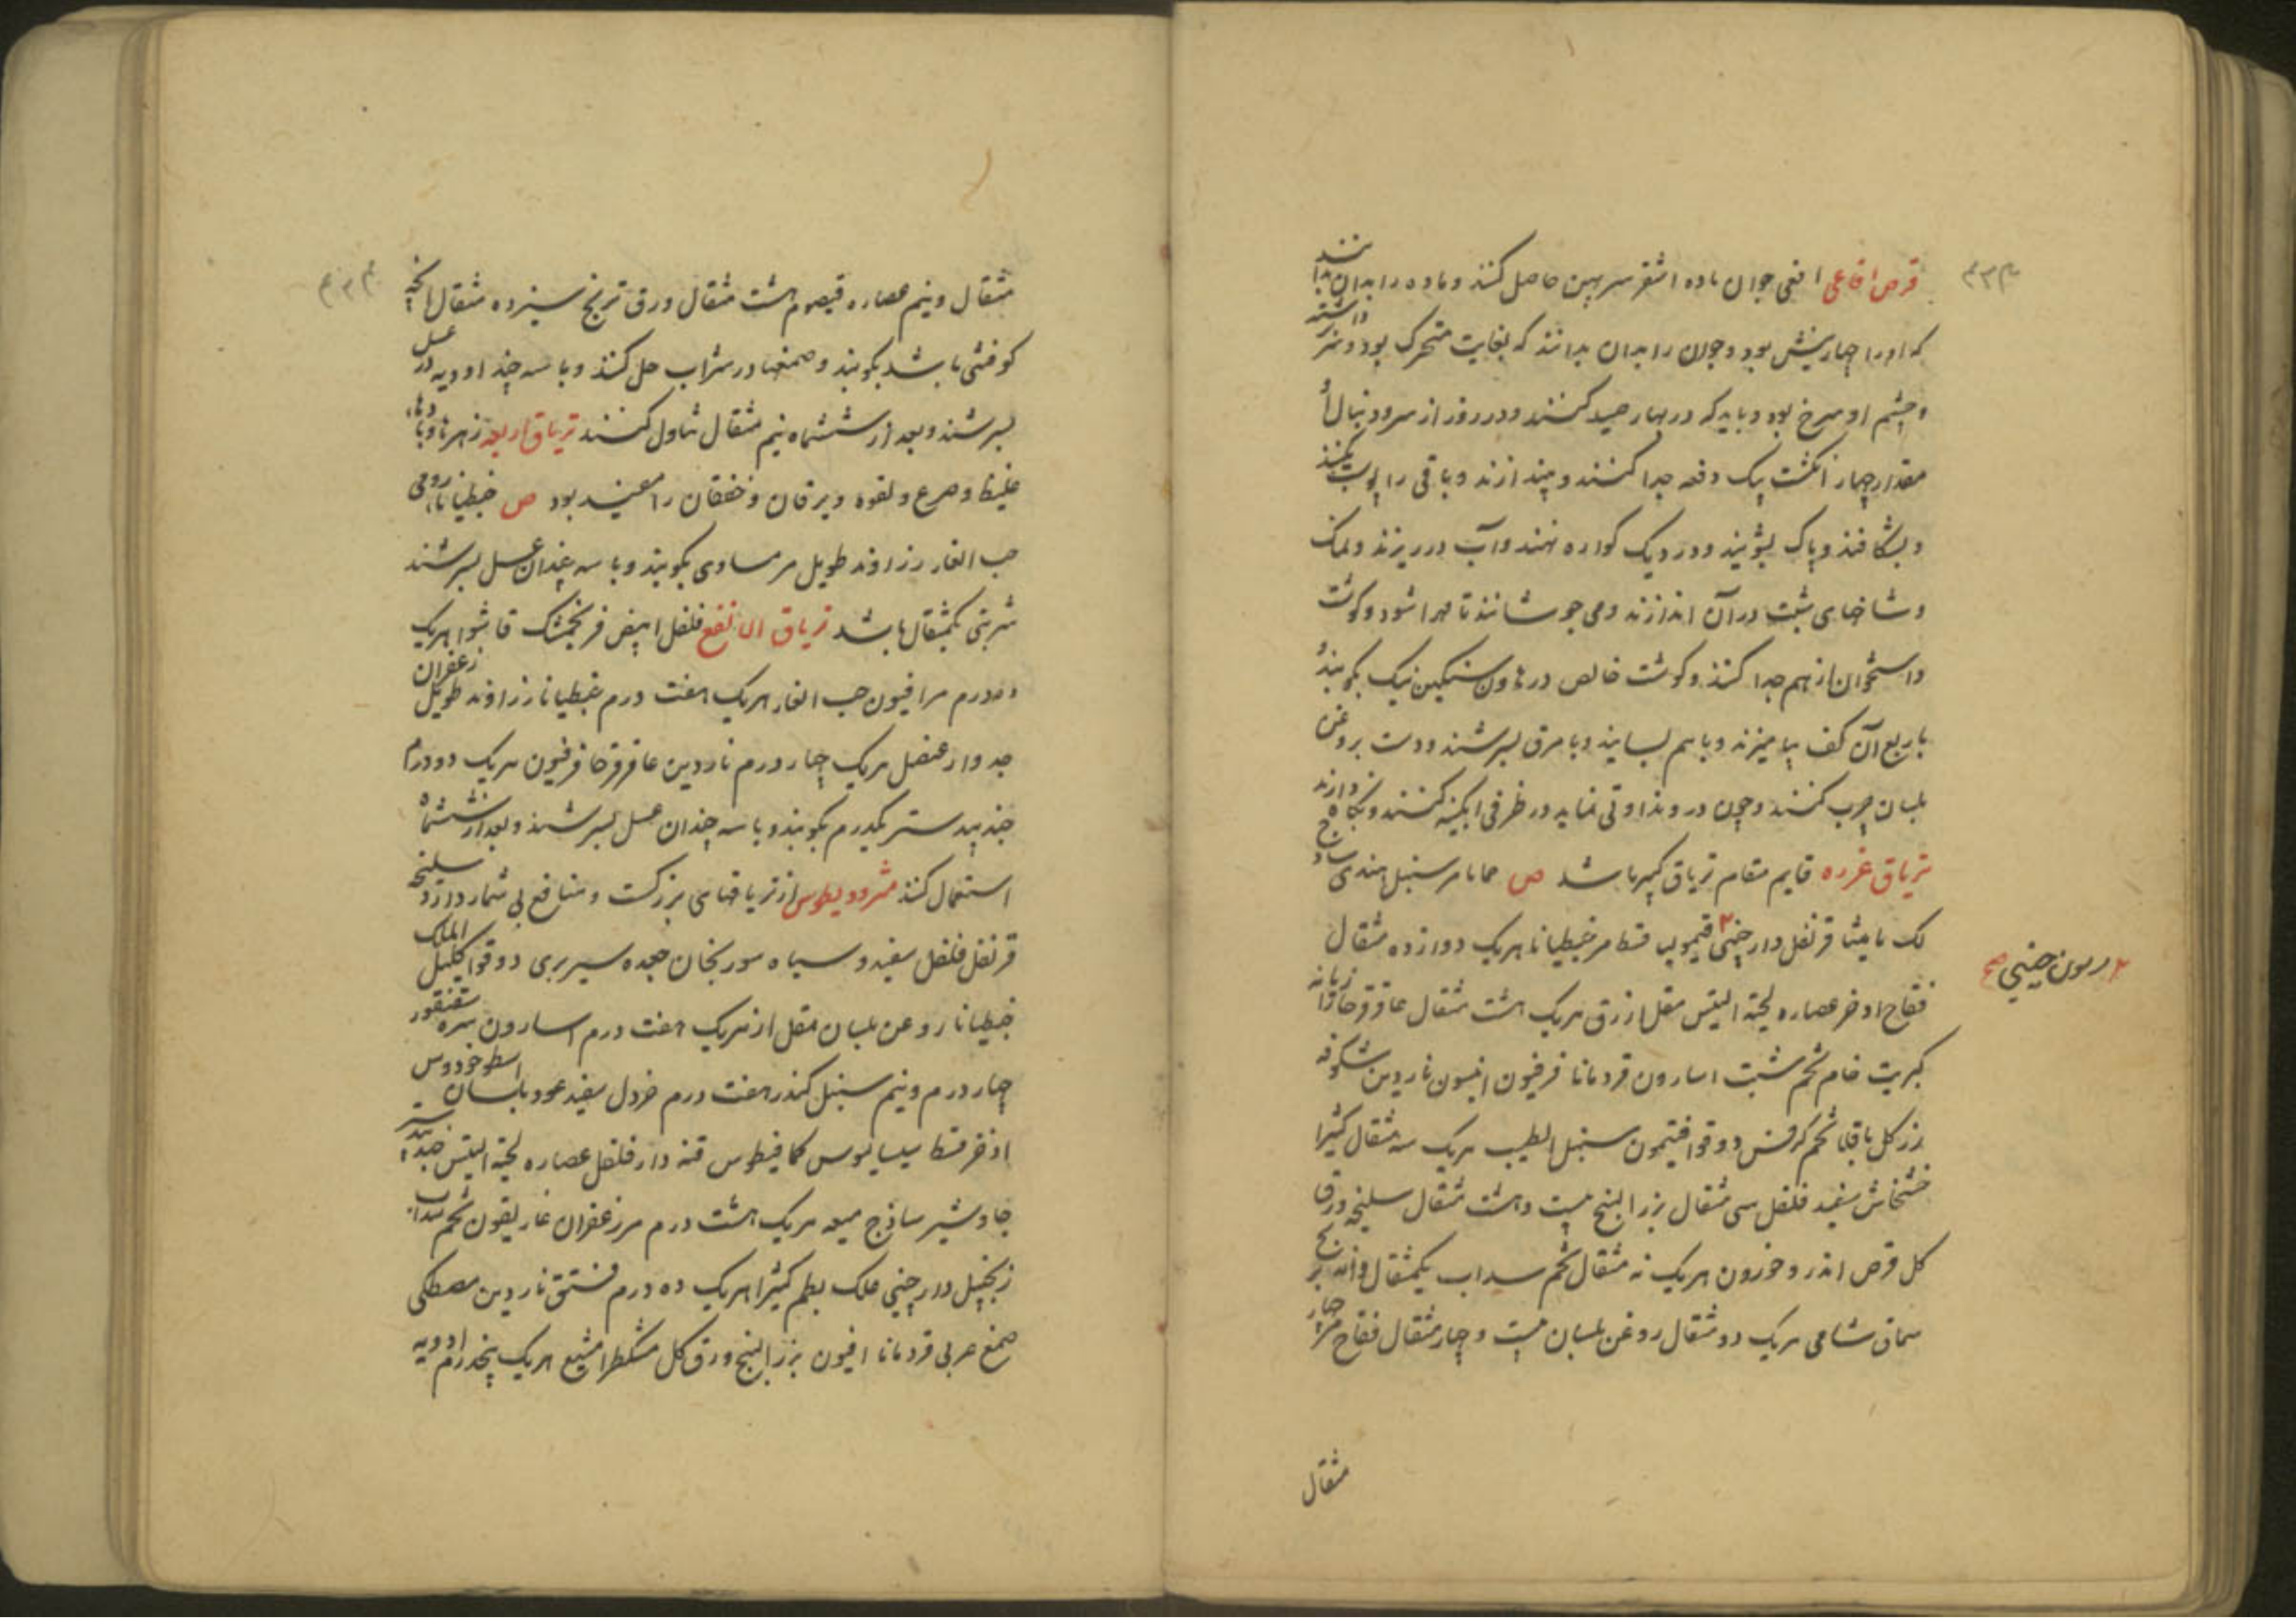 قرص افاعی افعی جوان ماده اشقر سر پهن حاصل کنند و ماده را بدان دانند
که او را چهار نیش بود و جوان را بدان بدانند که بغایت متحرک بود و سر برداشته
و چشم او سرخ بود و باید که در بهار صید کنند و در روز از سر و دنبال او
مقدار چهار انگشت بیک دفعه جدا کنند و بیندازند و باقی را پوست بکنند
و بشکافند و پاک بشویند و در دیک کواره نهند و آب در ریزند و نمک
و شاخهای شبت در آن اندازند و می جوشانند تا مهرا شود و کوشت
و استخوان از هم جدا کنند و کوشت خالص در هاون سنکین نیک بکوبند و
با ربع آن کف بیامیزند و با هم بسایند و با مرق بسرشند و دست بروغن
بلسان چرب کنند و چون در و نداوتی نماید در ظرفی ابکینه کنند و نکاه دارند
تریاق عزره قایم مقام تریاق کبیر باشد ص حماما مر سنبل هندی ساذج
لک مامیثا قرنفل دارچینی قیمولیا قسط مر جنطیانا هریک دوازده مثقال
۲ ریون چینی صح
فقاح اذخر عصاره لحیة التیس مقل ازرق هریک هشت مثقال عاقرقرحا رازیانه
کبریت خام تخم شبت اسارون قردمانا فرفیون انیسون ناردین شکوفه
بزر کل باقلا تخم کرفس دوقو افتیمون سنبل الطیب هریک سه مثقال کثیرا
خشخاش سفید فلفل سی مثقال بزر البنج بیست و هشت مثقال سلیخه ورق
کل قرص اندروخورون هریک نه مثقال تخم سداب یکمثقال دانه ترنج
سماق شامی هریک دو مثقال روغن بلسان بیست و چهار مثقال فقاح مر چهار
مثقال
مثقال و نیم عصاره قیصوم هشت مثقال ورق ترنج سیزده مثقال انچه
کوفتنی باشد بکوبند و صمغها در شراب حل کنند و با سه چند ادویه در عسل
بسرشند و بعد از ششماه نیم مثقال تناول کنند تریاق اربعه زهرها و بادهاء
غلیظ و صرع و لقوه و یرقان و خفقان را مفید بود ص جنطیانا رومی
حب الغار زراوند طویل مر مساوی بکوبند و با سه چندان عسل بسرشند
شربتی یکمثقال باشد تریاق الانفع فلفل ابیض فرنجمشک قاشوا هریک
ده درم مر افیون حب الغار هریک هفت درم جنطیانا زراوند طویل زعفران
جدوار عنصل هریک چهار درم ناردین عاقرقرحا فرفیون هریک دو درم
جندبیدستر یکدرم بکوبند و با سه چندان عسل بسرشند و بعد از ششماه
استعمال کنند مثرودیطوس از تریاقهای بزرکست و منافع بی شمار دارد سلیخه
قرنفل فلفل سفید و سیاه سورنجان جعده سیر بری دوقو اکلیل الملک
جنطیانا روغن بلسان مقل از هریک هفت درم اسارون سره سقنقور
چهار درم و نیم سنبل کندر هفت درم خردل سفید عود بلسان اسطوخودوس
اذخر قسط سیسالیوس کمافیطوس قنه دارفلفل عصاره لحیة التیس جندبیدستر
جاوشیر ساذج میعه هریک هشت درم مر زعفران غاریقون تخم سداب
زنجبیل دارچینی علک بطم کثیرا هریک ده درم فستق ناردین مصطکی
صمغ عربی قردمانا افیون بزر البنج ورق کل مشکطرامشیع هریک پنجدرم ادویه